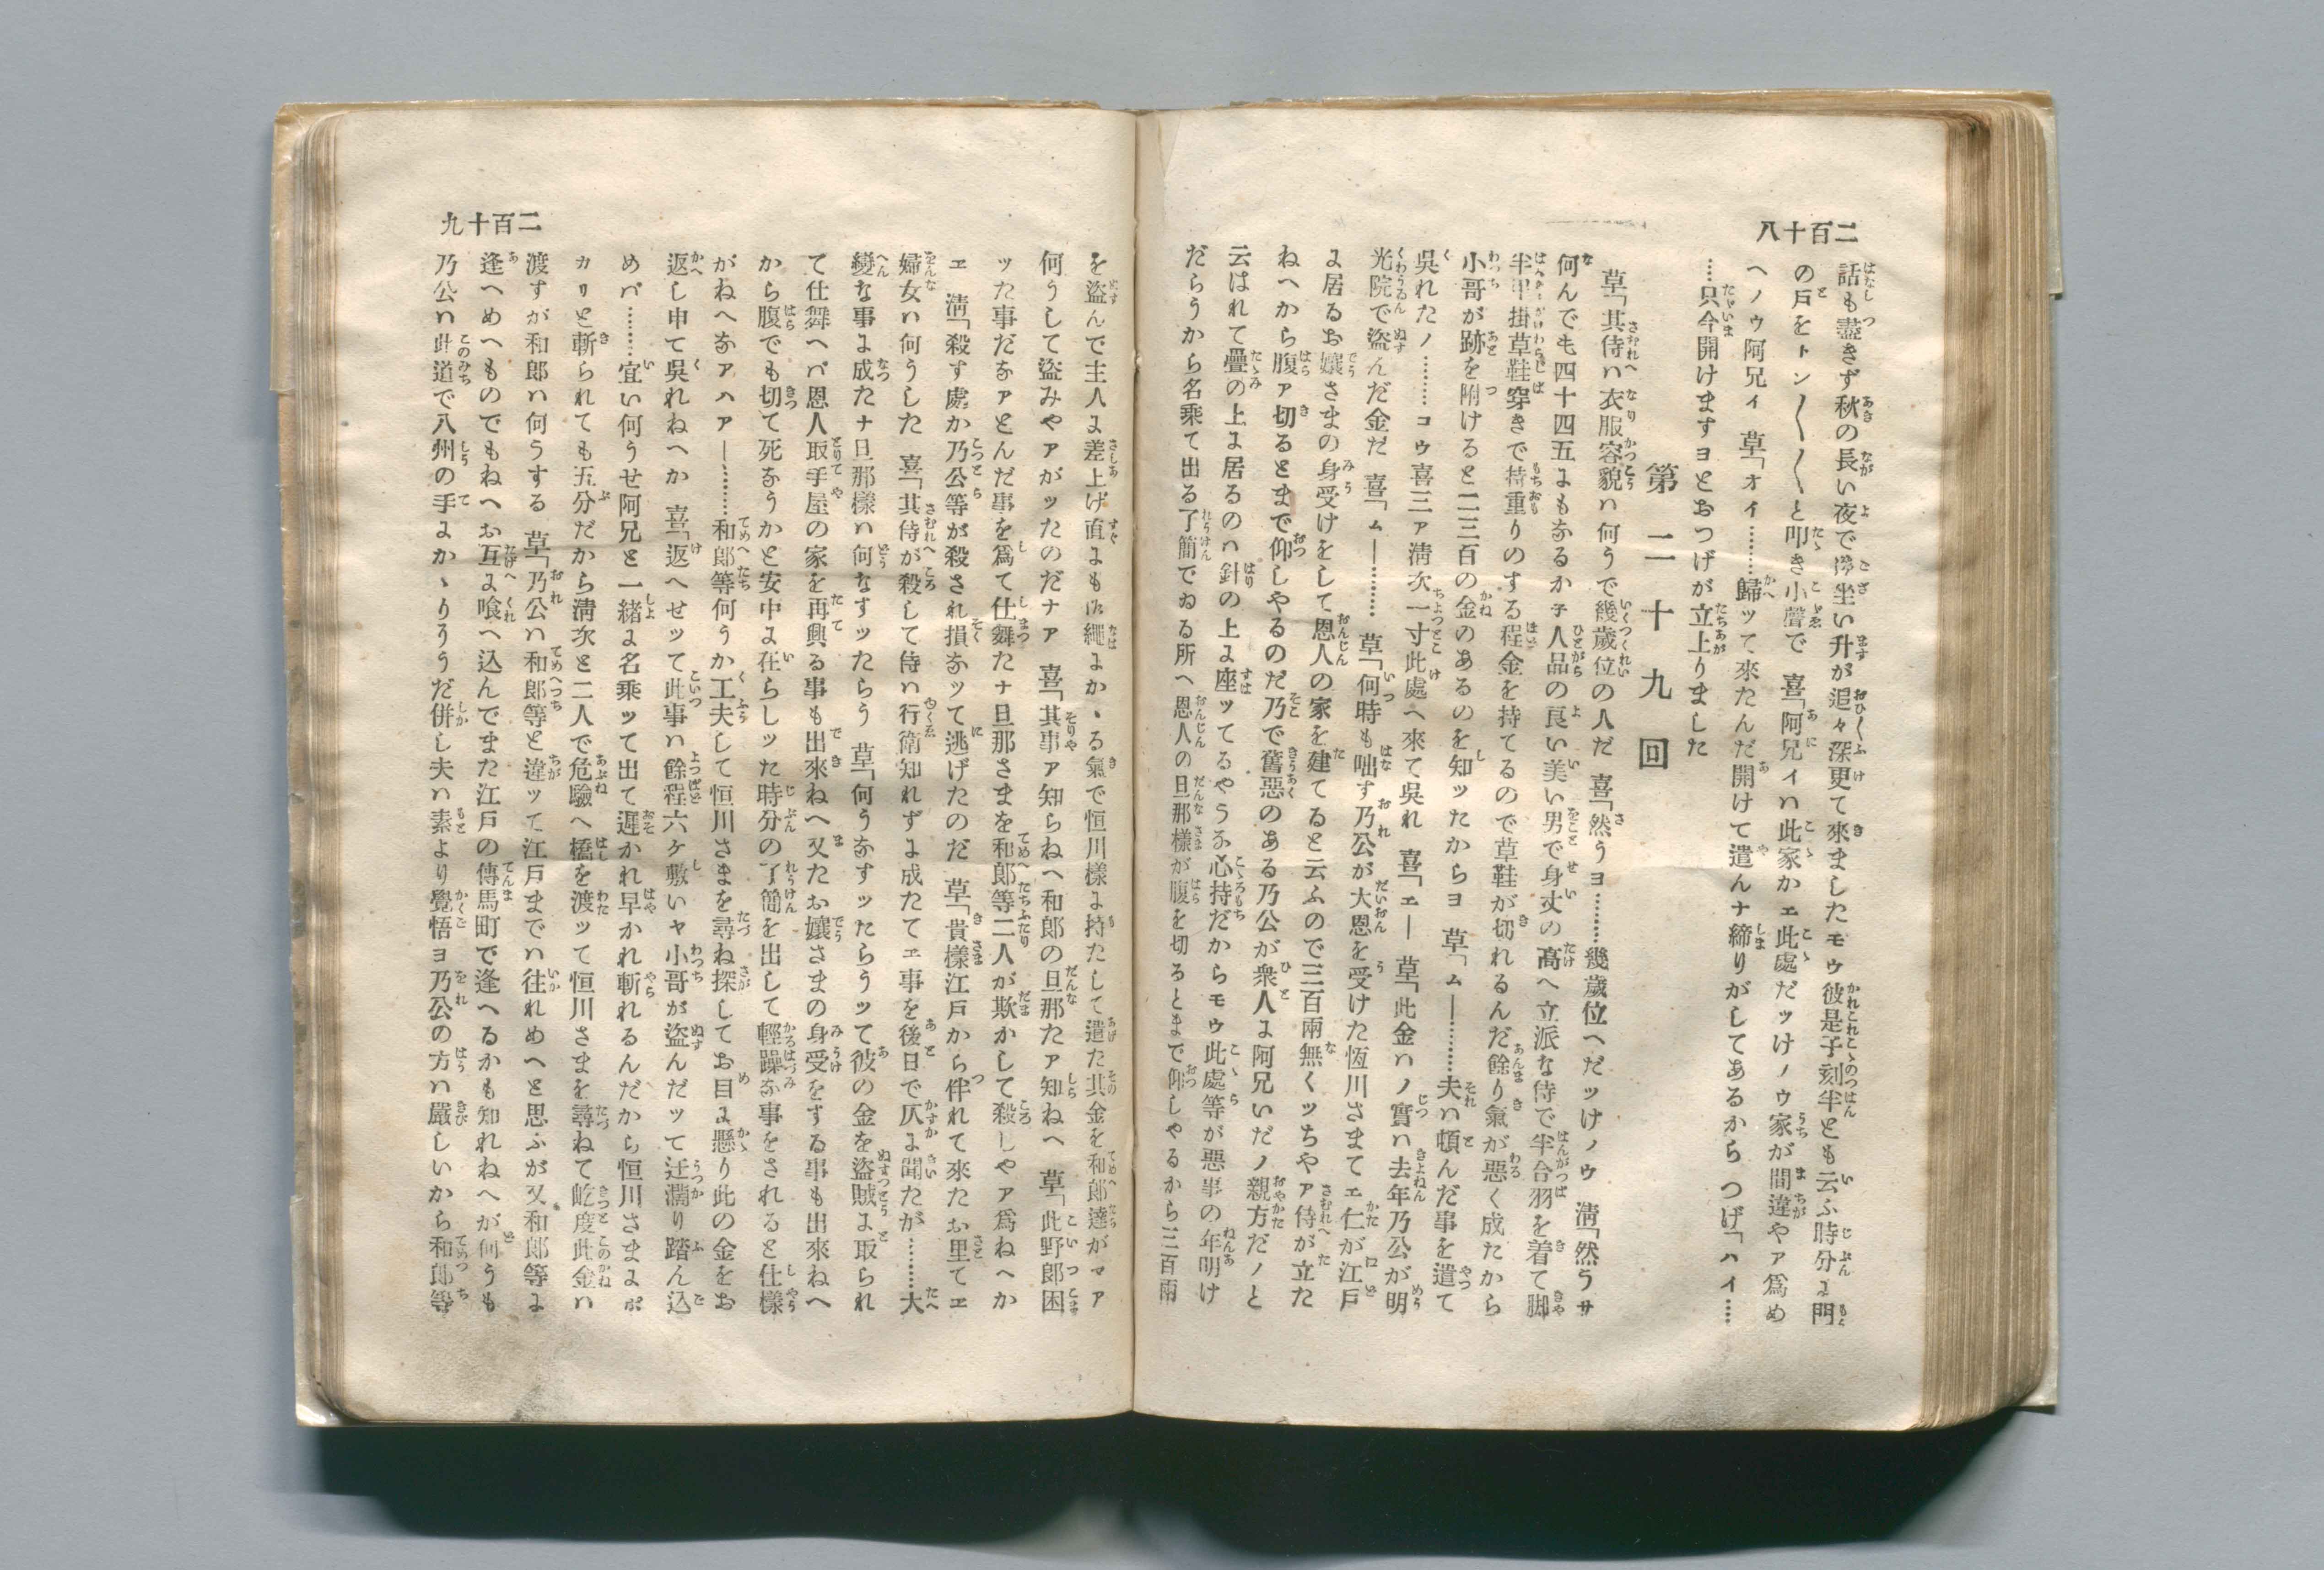 二百十八
話も盡きず秋の長い夜で御坐い升が追々深更て來ましたモウ彼是子刻半とも云ふ時分に門
の戸をトン〳〵〳〵と叩き小聲で 喜「阿兄イハ此家かエ此處だッけノウ家が間違やア爲め
ヘノウ阿兄ィ 草「オイ………歸ッて來たんだ開けて遣んナ締りがしてあるから つげ「ハイ……
……只今開けますヨとおつげが立上りました
第二十九回
草「其侍ハ衣服容貌ハ何うで幾歳位の人だ 喜「然うヨ………幾歳位へだッけノウ 淸「然うサ
何んでも四十四五にもなるか子人品の良い美い男で身丈の高へ立派な侍で半合羽を着て脚
半甲掛草鞋穿きで持重りのする程金を持てるので草鞋が切れるんだ餘り氣が悪く成たから
小哥が跡を附けると二三百の金のあるのを知ッたからヨ 草「ムー………夫ハ頓んだ事を遣て
呉れたノ………コウ喜三ア淸次一寸此處へ來て呉れ 喜「エー 草「此金ハノ實ハ去年乃公が明
光院で盗んだ金だ 喜「ムー……… 草「何時も咄す乃公が大恩を受けた恒川さまてエ仁が江戸
に居るお孃さまの身受けをして恩人の家を建てると云ふので三百兩無くッちやア侍が立た
ねへから腹ア切るとまで仰しやるのだ乃で舊惡のある乃公が衆人に阿兄いだノ親方だノと
云はれて疊の上に居るのハ針の上に座ッてるやうな心持だからモウ此處等が悪事の年明け
だらうから名乘て出る了簡でゐる所へ恩人の旦那様が腹を切るとまで仰しやるから三百兩
二百十九
を盗んで主人に差上げ直にも縄にかゝる氣で恒川様に持たして遣た其金を和郎達がマア
何うして盗みやアがッたのだナア 喜「其事ア知らねへ和郎の旦那たア知ねへ 草「此野郎困
ッた事だなアとんだ事を爲て仕舞たナ旦那さまを和郎等二人が欺かして殺しやア爲ねへか
エ 淸「殺す處か乃公等が殺され損なッて逃げたのだ 草「貴様江戸から伴れて來たお里てエ
婦女ハ何うした 喜「其侍が殺して侍ハ行衛知れずに成たてエ事を後日で仄に聞たが………大
變な事に成たナ旦那様ハ何なすッたらう 草「何うなすッたらうッて彼の金を盗賊に取られ
て仕舞へバ恩人取手屋の家を再興る事も出來ねへ又たお孃さまの身受をする事も出來ねへ
から腹でも切て死なうかと安中に在らしッた時分の了簡を出して輕躁な事をされると仕様
がねへなアハアー………和郎等何うか工夫して恒川さまを尋ね探してお目に懸り此の金をお
返し申て呉れねへか 喜「返へせッて此事ハ餘程六ケ敷いヤ小哥が盗んだッて迂濶り踏ん込
めバ………宜い何うせ阿兄と一緒に名乘ッて出て遲かれ早かれ斬れるんだから恒川さまにボ
カリと斬られても五分だから淸次と二人で危驗へ橋を渡ッて恒川さまを尋ねて屹度此金ハ
渡すが和郎ハ何うする 草「乃公ハ和郎等と違ッて江戸までハ往れめへと思ふが又和郎等に
逢へめへものでもねへお互に喰へ込んでまた江戸の傳馬町で逢へるかも知れねへが何うも
乃公ハ此道で八州の手にかゝりさうだ併し夫ハ素より覺悟ヨ乃公の方ハ嚴しいから和郎等